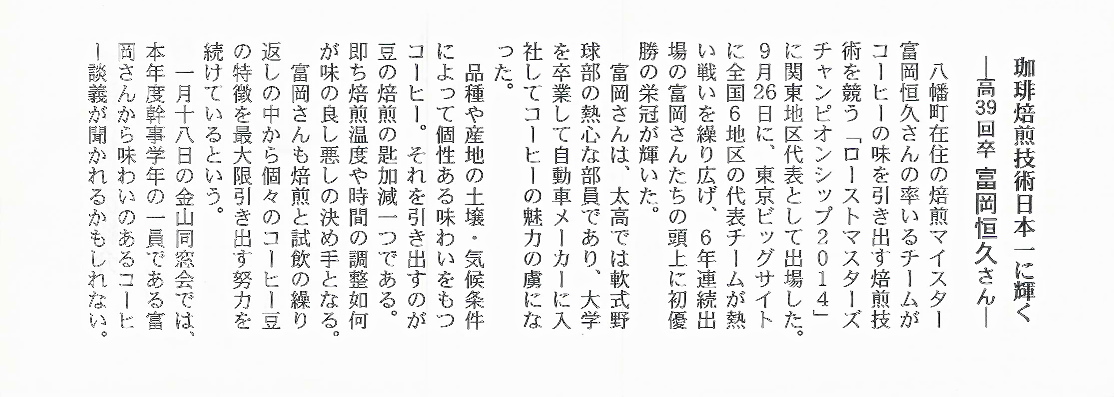 珈琲焙煎技術日本一に輝く
―高39回卒 富岡恒久さん―
八幡町在住の焙煎マイスター
富岡恒久さんの率いるチームが
コーヒーの味を引き出す焙煎技
術を競う「ローストマスターズ
チャンピオンシップ2014」
に関東地区代表として出場した。
9月26日に、東京ビッグサイト
に全国6地区の代表チームが熱
い戦いを繰り広げ、6年連続出
場の富岡さんたちの頭上に初優
勝の栄冠が輝いた。
富岡さんは、太高では軟式野
球部の熱心な部員であり、大学
を卒業して自動車メーカーに入
社してコーヒーの魅力の虜にな
った。
品種や産地の土壌・気候条件
によって個性ある味わいをもつ
コーヒー。それを引き出すのが
豆の焙煎の匙加減一つである。
即ち焙煎温度や時間の調整如何
が味の良し悪しの決め手となる。
富岡さんも焙煎と試飲の繰り
返しの中から個々のコーヒー豆
の特徴を最大限引き出す努力を
続けているという。
一月十八日の金山同窓会では、
本年度幹事学年の一員である富
岡さんから味わいのあるコーヒ
ー談義が聞かれるかもしれない。